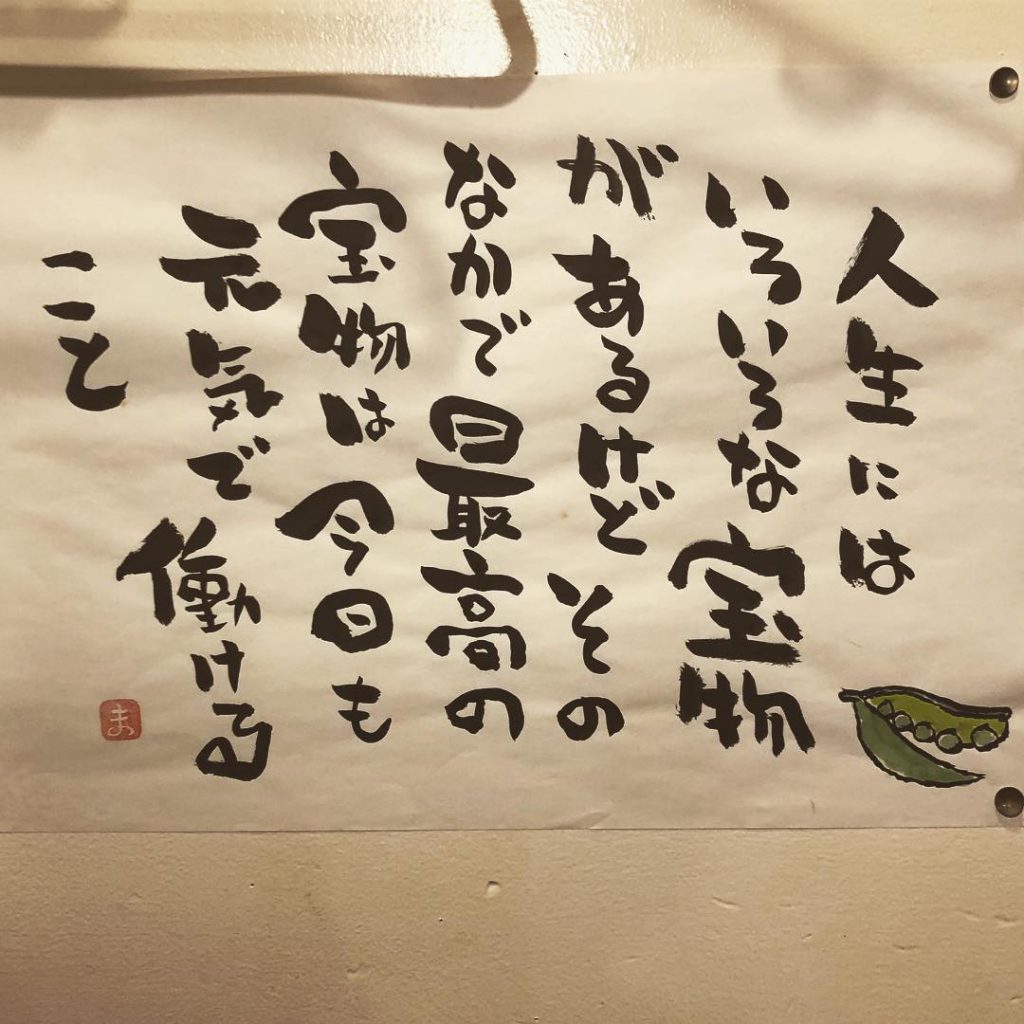 人生には
いろいろな宝物
があるけど その
なかで最高の
宝物は今日も
元気で働ける
こと
ま